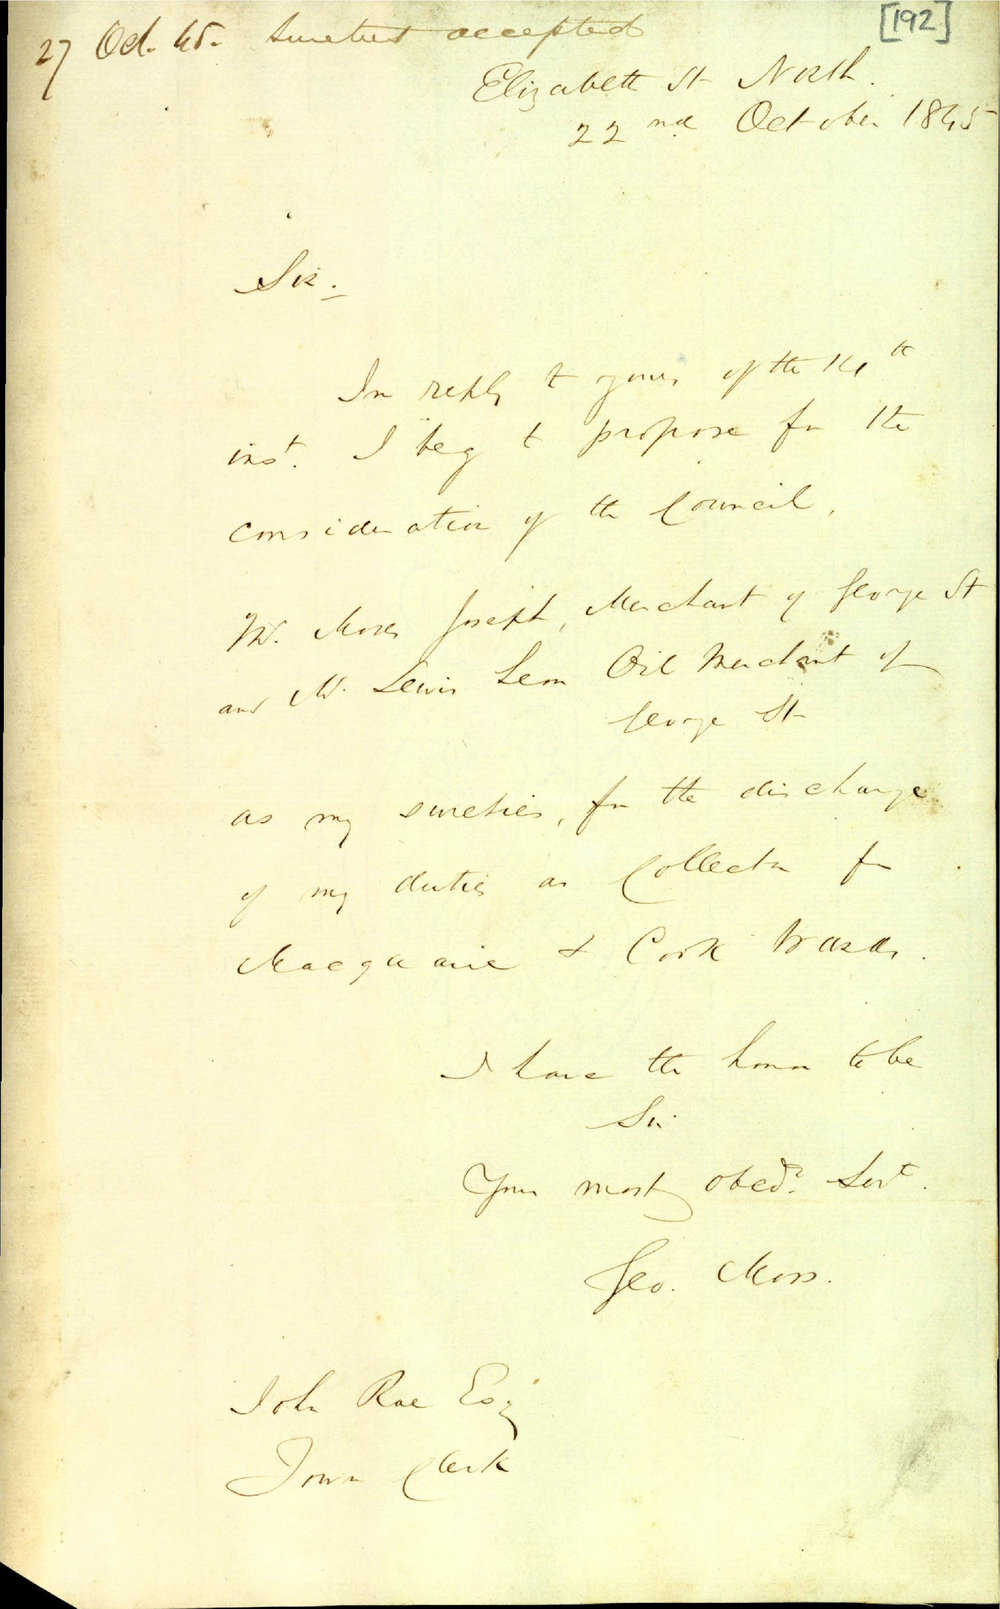 [192]
27 Oct. 45. Sureties accepted
Elizabeth St North.
22nd October 1845
Sir.
In reply to yours of the 14th
inst. I beg to propose for the
consideration of the Council,
Mr. Moses Joseph, Merchant of George St
and Mr. Lewis Leon Oil Merchant of
George St
as my sureties, for the discharge
of my duties as Collector for
Macquarie & Cook Wards.
I have the honor to be
Sir
Your most obedt. Servt.
Geo. Moss.
John Rae Esq
Town Clerk